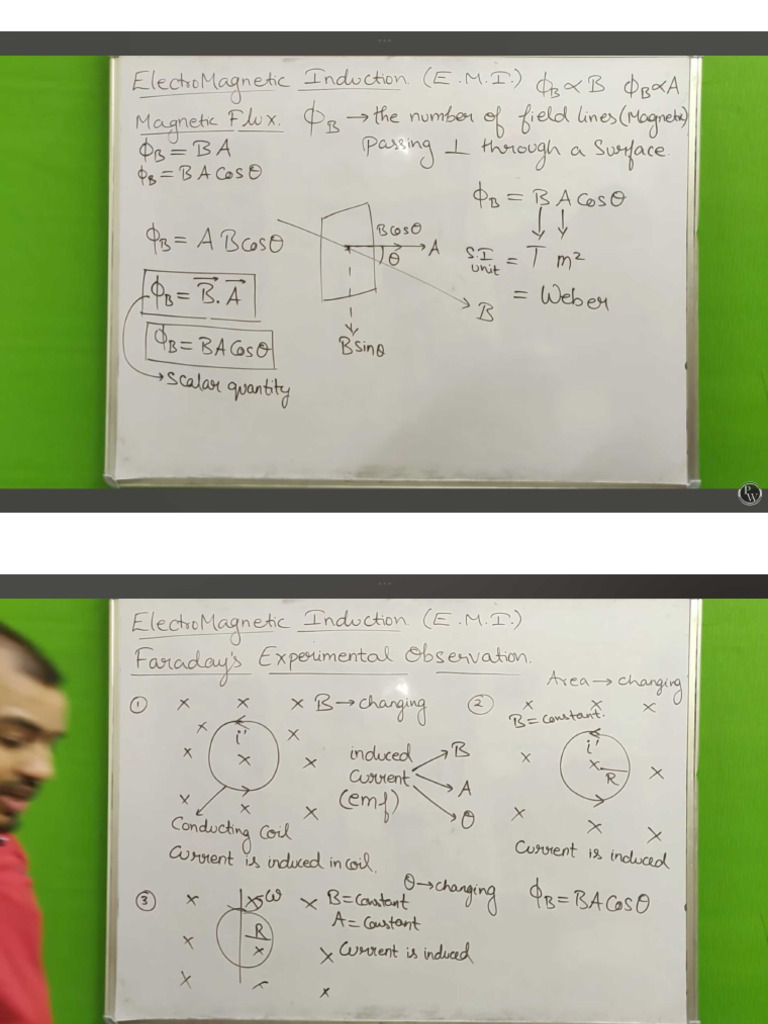 ElectroMagnetic Induction (E.M.I.) ϕB ∝ B ϕB ∝ A
Magnetic Flux. ϕB → the number of field lines (Magnetic)
Passing ⊥ through a Surface.
ϕB = BA
ϕB = BA Cosθ
ϕB = B A Cosθ
ϕB = A B Cosθ
B Cosθ
A
θ
S.I unit = T m²
= Weber
B
ϕB = B⃗ . A⃗
ϕB = BA Cosθ
B sinθ
→ Scalar quantity
PW
ElectroMagnetic Induction (E.M.I.)
Faraday's Experimental Observation.
① × × × B → changing
× × × × × × × ×
i'
induced Current (emf)
B
A
θ
Conducting Coil
Current is induced in coil.
② Area → changing
× × ×
B = constant.
i'
× × × × × ×
R
Current is induced
③ × × ω × B = Constant
θ → changing
A = Constant
R
× × × Current is induced
× ×
ϕB = BA Cosθ